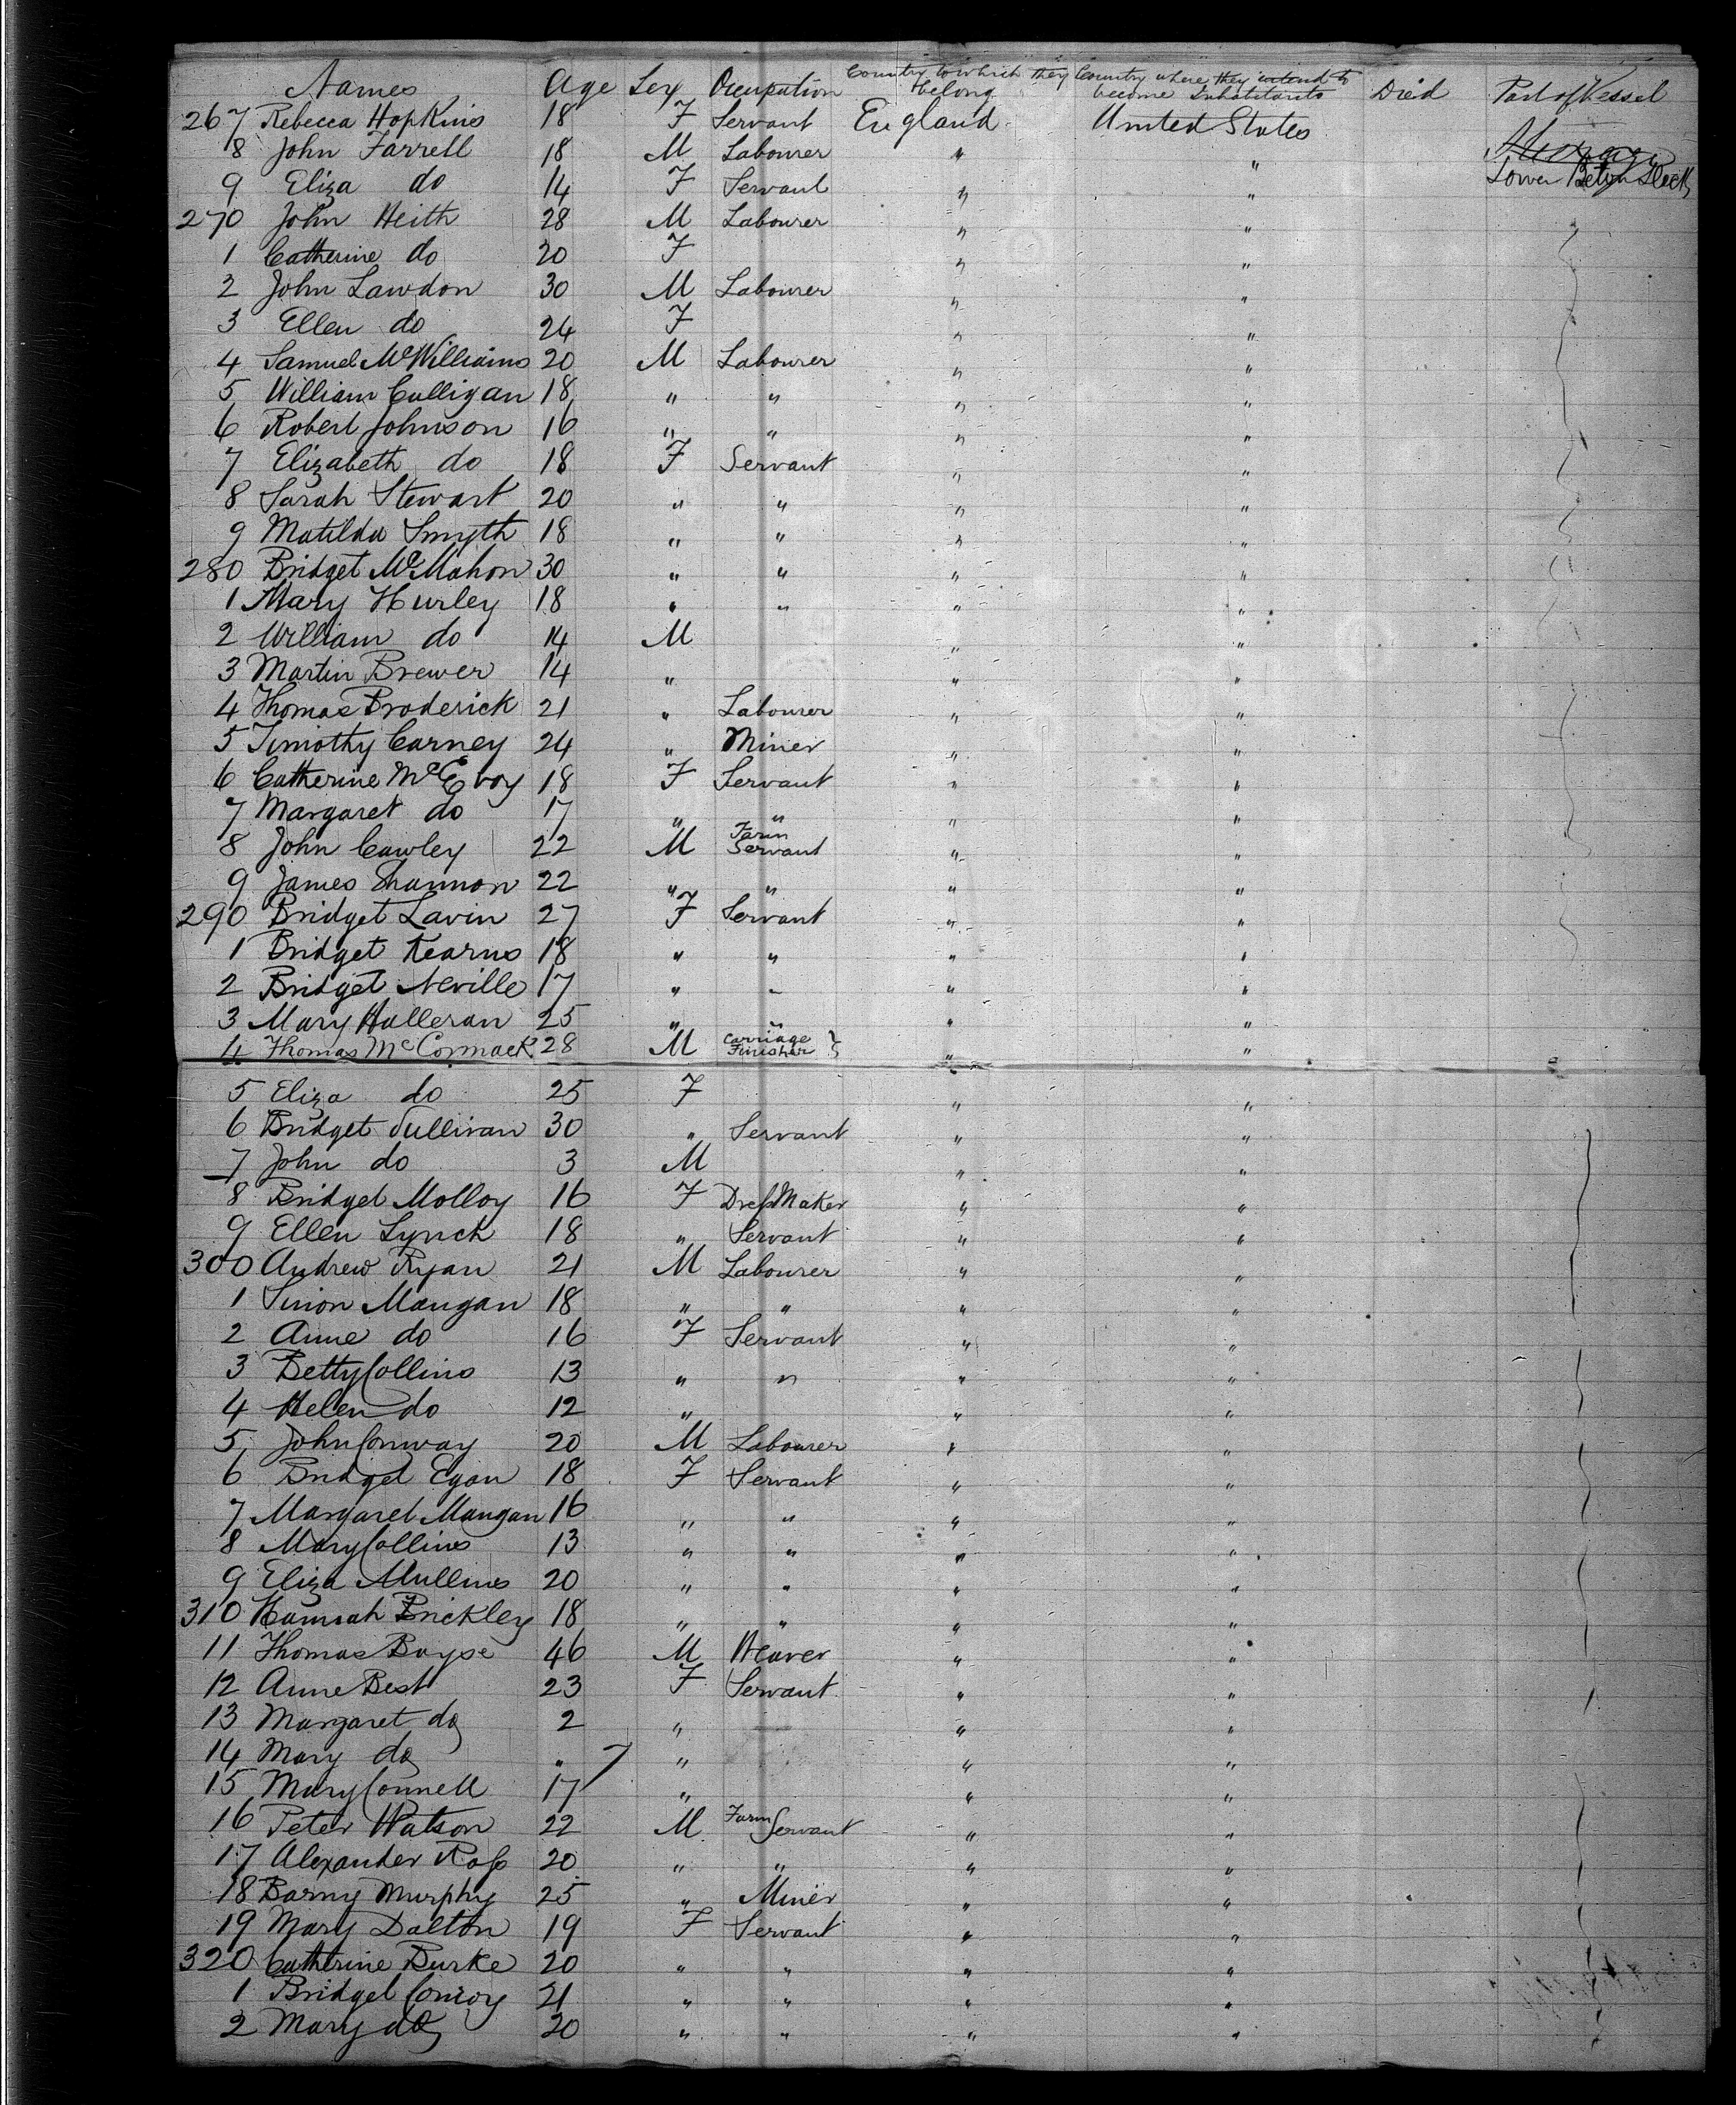 Names Age Sex Occupation Country to which they belong Country where they intend to become Inhabitants Died Part of Vessel
267 Rebecca Hopkins 18 F Servant England United States
8 John Farrell 18 M Labourer " "
9 Eliza do 14 F Servant " " Lower Betwn Deck
270 John Keith 28 M Labourer " "
1 Catherine do 20 F " "
2 John Lawdon 30 M Labourer " "
3 Ellen do 24 F " "
4 Samuel McWilliams 20 M Labourer " "
5 William Culligan 18 " " " "
6 Robert Johnson 16 " " " "
7 Elizabeth do 18 F Servant " "
8 Sarah Stewart 20 " " " "
9 Matilda Smyth 18 " " " "
280 Bridget McMahon 30 " " " "
1 Mary Hurley 18 " " " "
2 William do 14 M " "
3 Martin Brewer 14 " " "
4 Thomas Broderick 21 " Labourer " "
5 Timothy Carney 24 " Miner " "
6 Catherine McEvoy 18 F Servant " "
7 Margaret do 17 " " " "
8 John Cawley 22 M Farm Servant " "
9 James Shannon 22 " " " "
290 Bridget Lavin 27 F Servant " "
1 Bridget Kearns 18 " " " "
2 Bridget Neville 17 " " " "
3 Mary Halleran 25 " " " "
4 Thomas McCormack 28 M Carriage Finisher } " "
5 Eliza do 25 F " "
6 Bridget Sullivan 30 " Servant " "
7 John do 3 M " "
8 Bridget Molloy 16 F Dress Maker " "
9 Ellen Lynch 18 " Servant " "
300 Andrew Ryan 21 M Labourer " "
1 Simon Mangan 18 " " " "
2 Anne do 16 F Servant " "
3 Betty Collins 13 " " " "
4 Helen do 12 " " "
5 John Conway 20 M Labourer " "
6 Bridget Egan 18 F Servant " "
7 Margaret Mangan 16 " " " "
8 Mary Collins 13 " " " "
9 Eliza Mullins 20 " " " "
310 Hannah Brickley 18 " " " "
11 Thomas Boyse 46 M Weaver " "
12 Anne Best 23 F Servant " "
13 Margaret do 2 " " "
14 Mary do " 7 " " "
15 Mary Connell 17 " " "
16 Peter Watson 22 M Farm Servant " "
17 Alexander Ross 20 " " " "
18 Barny Murphy 25 " Miner " "
19 Mary Dalton 19 F Servant " "
320 Catherine Burke 20 " " " "
1 Bridget Conroy 21 " " " "
2 Mary do 20 " " " "